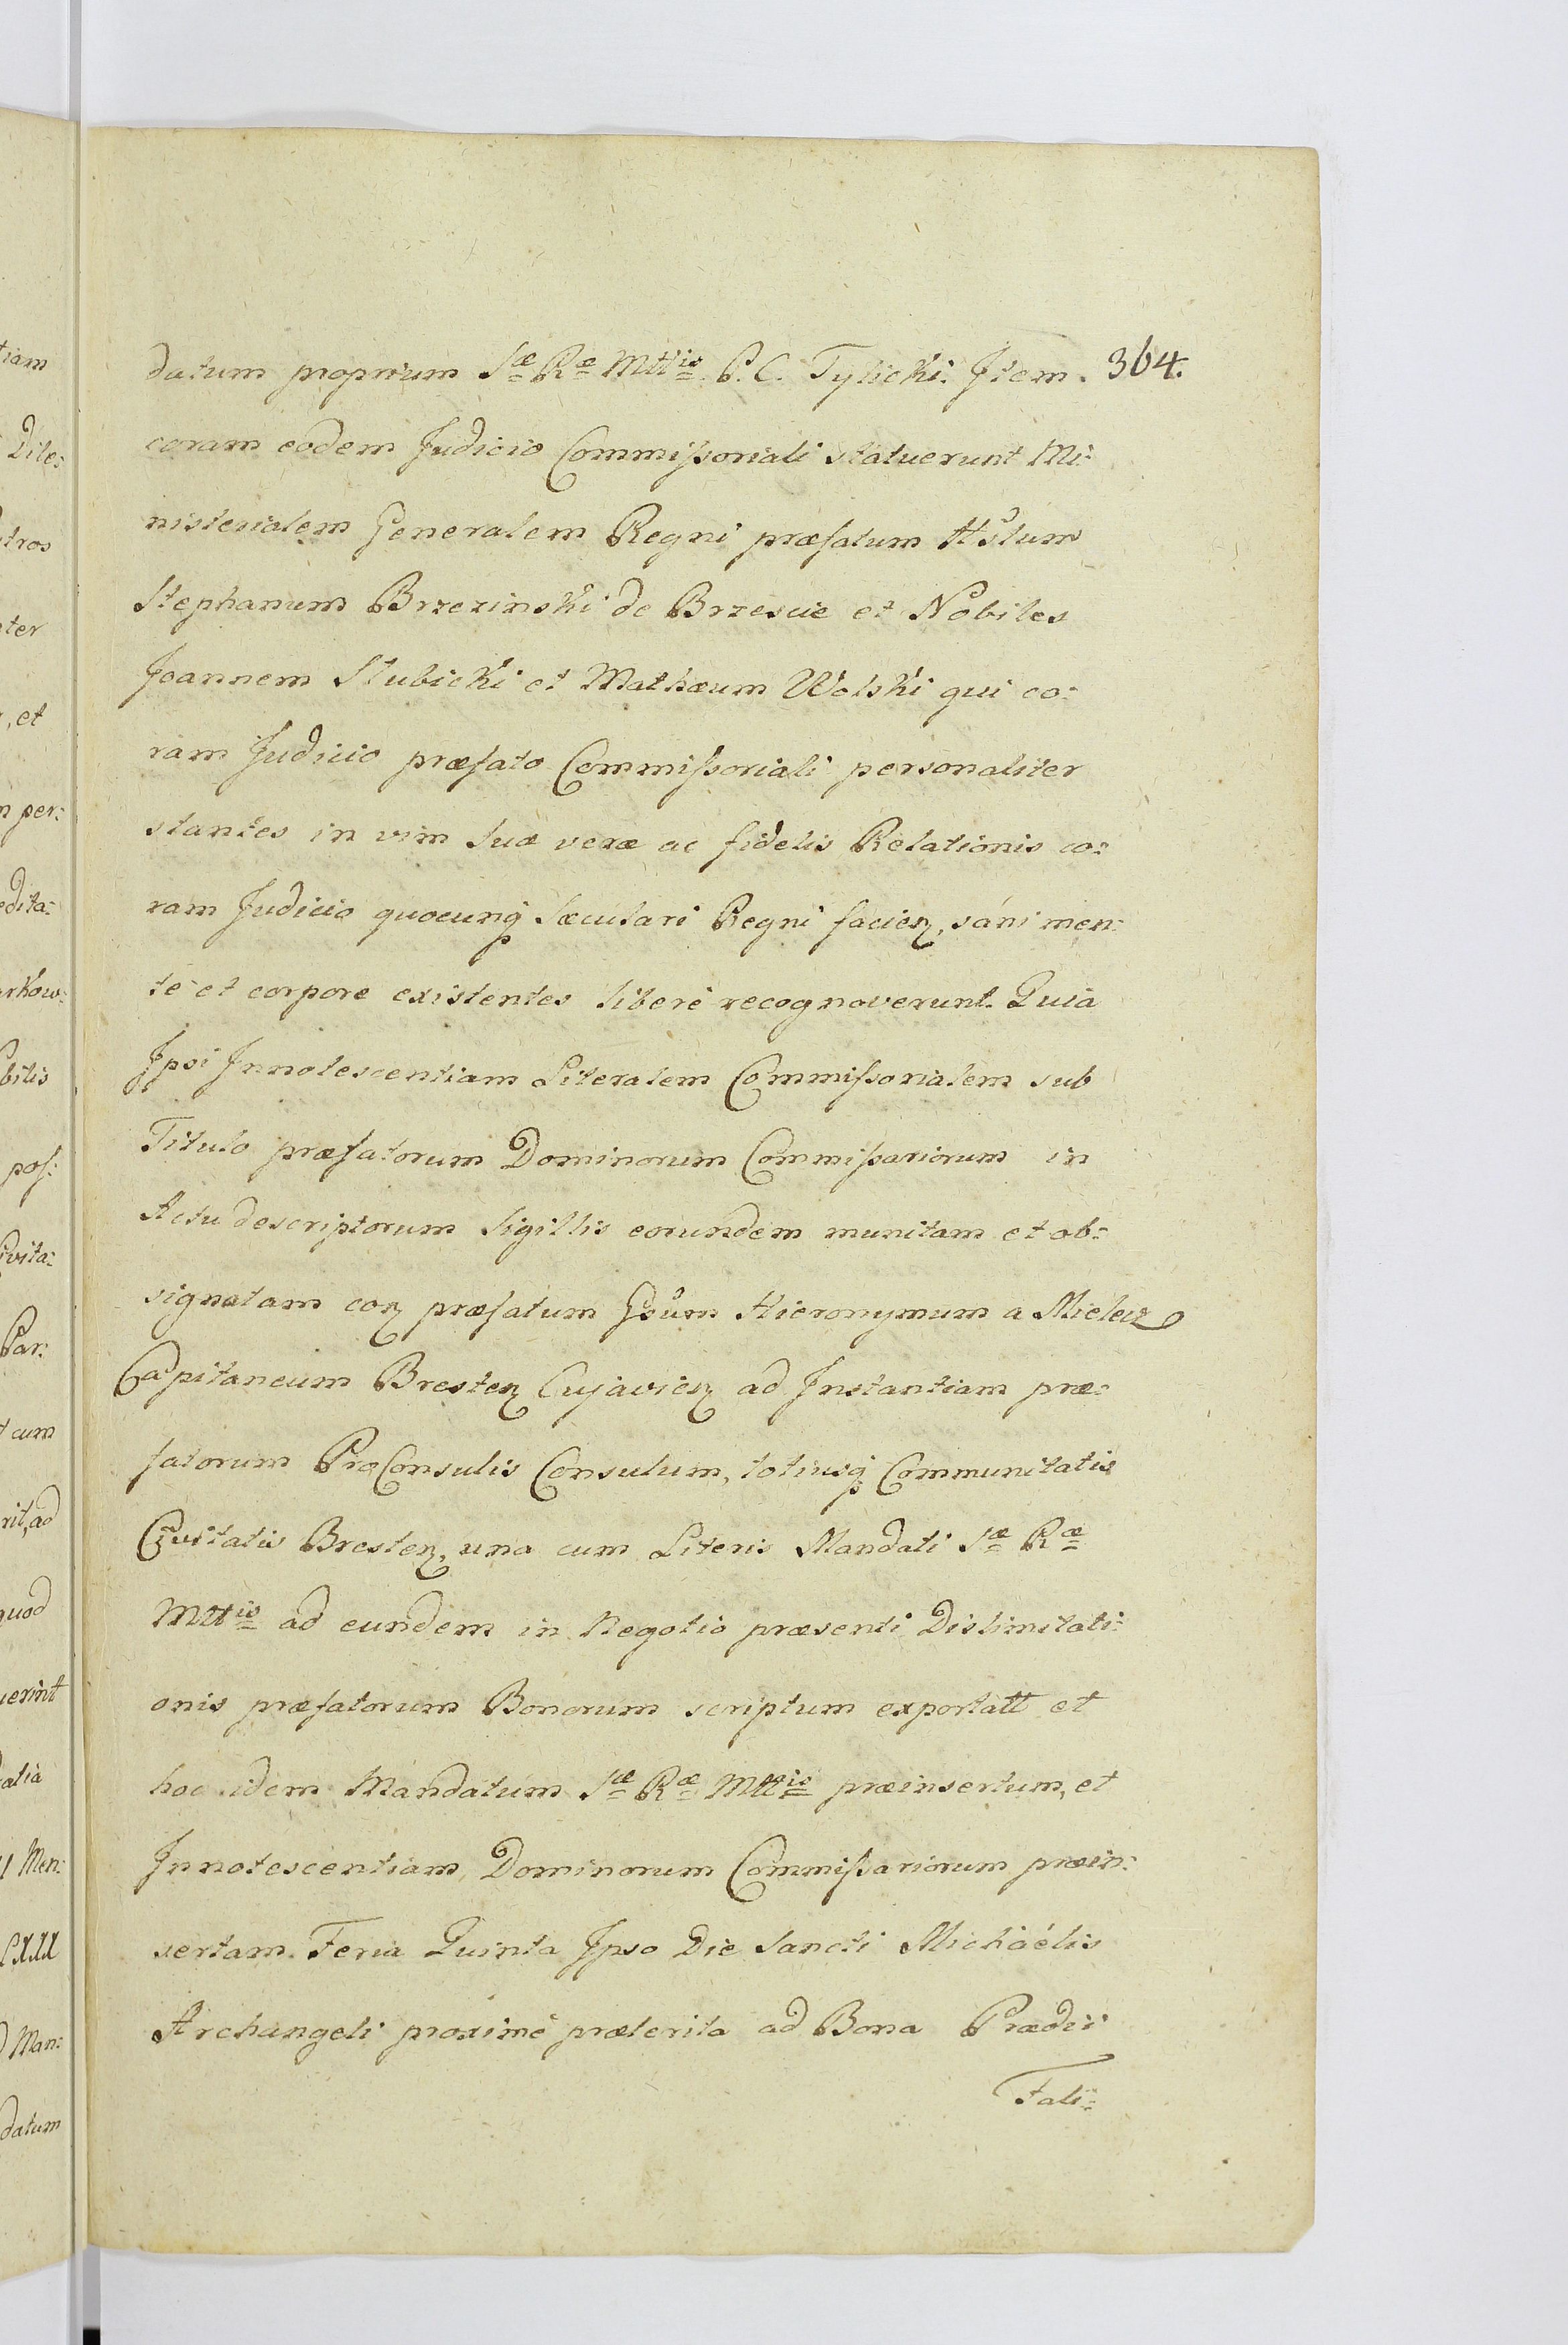 datum proprium Sæ Ræ Mttis P. C. Tylicki. Item. 364.
coram eodem Judicio Commißoriali statuerunt Mi:
nisterialem Generalem Regni præfatum Hstum
Stephanum Brzezinski de Brzescie et Nobiles
Joannem Slubicki et Mathæum Wolski qui co:
ram Judicio præfato Commißoriali personaliter
stantes in vim suæ veræ ac fidelis Relationis co:
ram Judicio quocunq Sæculari Regni facien, sáni men:
te et corpore existentes liberè recognoverunt. Quia
Ipsi Innotescentiam Literalem Commißorialem sub
Titulo præfatorum Dominorum Commißariorum in
Actu descriptorum Sigillis eorundem munitam et ob:
signatam con præfatum Gsum Hieronymum a Mielecz
Capitaneum Bresten Cujavien ad Instantiam præ:
fatorum ProConsulis Consulum, totiusq Communitatis
Civitatis Bresten, una cum Literis Mandati Sæ Ræ
Mttis ad eundem in Negotio præsenti Dislimitati:
onis præfatorum Bonorum scriptum exportatt et
hoc idem Mandatum Sæ Ræ Mttis præinsertum, et
Innotescentiam Dominorum Commißariorum præin:
sertam. Feria Quinta Ipso Die Sancti Michäélis
Archangeli proximè præterita ad Bona Prædii
Fali:
tiam
Dile:
tros
ter
, et
n per:
edita:
rkow:
bilis
pos:
ivita:
Par:
t cum
rit, ad
quod
uerint
alia
Men:
LXXX
Man:
datum